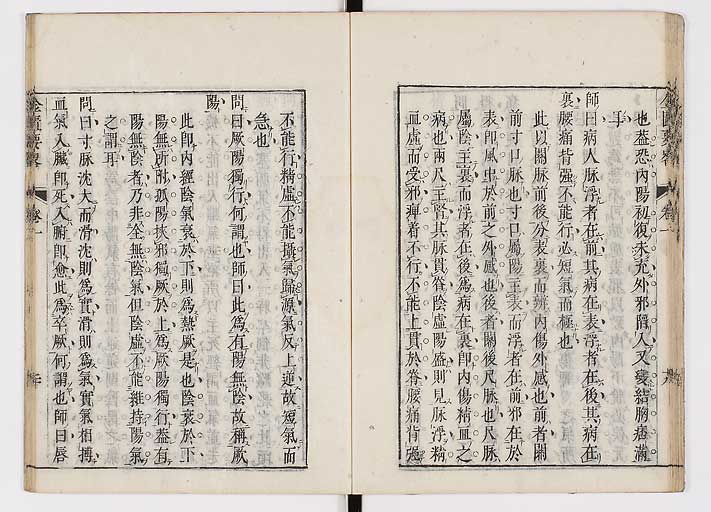 也蓋恐内陽初復未充外邪陷入又變結胸痞滿
耳
師曰病人脉浮者在前其病在表浮者在後其病在
裏腰痛背强不能行必短氣而極也
此以關脉前後分表裏而辨内傷外感也前者關
前寸口脉也寸口屬陽主表而浮者在前邪在於
表即風中於前之外感也後者關後尺脉也尺脉
屬陰主裏而浮者在後爲病在裏即内傷精血之
病也兩尺主腎其脉貫脊陰虚陽盛則見脉浮精
血虚而受邪痺着不行不能上貫於脊腰痛背强
不能行精虚不能攝氣歸源氣反上逆故短氣而
急也
問曰厥陽獨行何謂也師曰此爲有陽無陰故稱厥
陽
此即内經陰氣衰於下則爲熱厥是也陰衰於下
陽無所附孤陽挾邪獨厥於上爲厥陽獨行蓋有
陽無陰者乃非全無陰氣但陰虚不能維持陽氣
之謂耳
問曰寸脉沈大而滑沈則爲實滑則爲氣實氣相搏
血氣入臟即死入腑即愈此爲卒厥何謂也師曰唇
金匱要畧
卷一